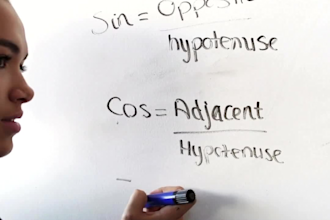 Sin = Opposite
hypotenuse
Cos = Adjacent
Hypotenuse